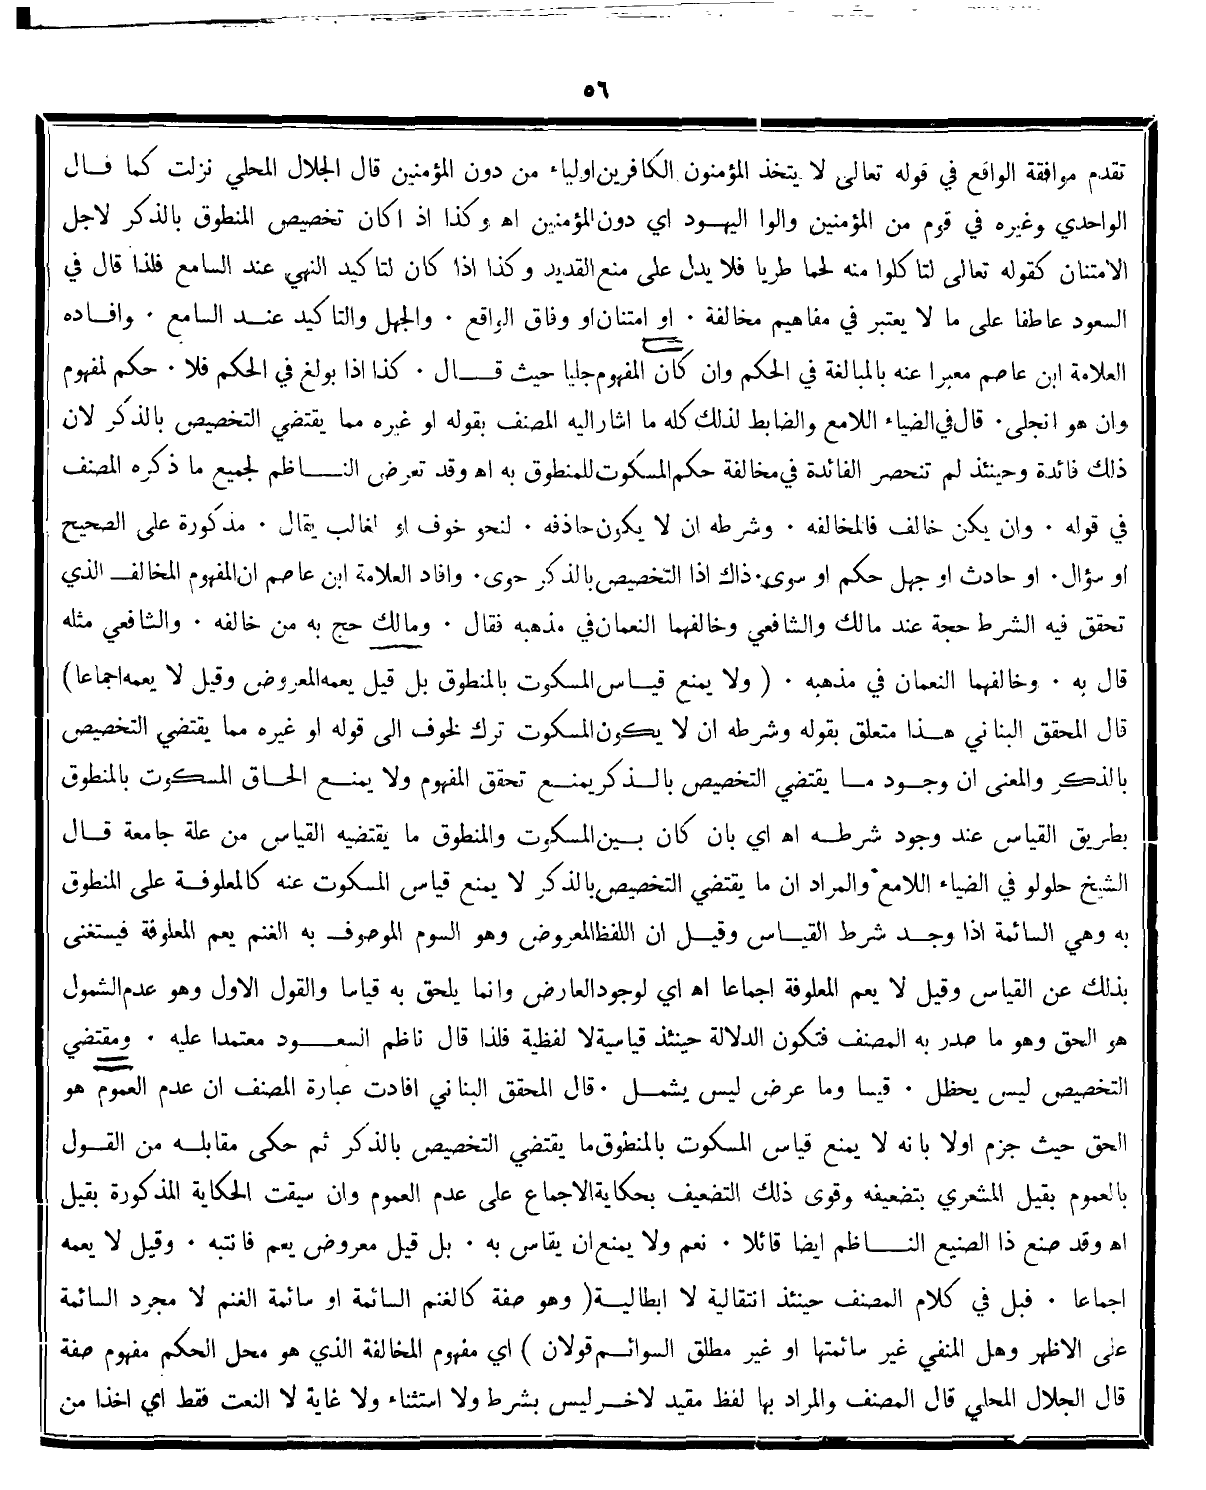 ٥٦
تقدم موافقة الواقع في قوله تعالى لا يتخذ المؤمنون الكافرين اولياء من دون المؤمنين قال الجلال المحلي نزلت كما قال
الواحدي وغيره في قوم من المؤمنين والوا اليهود اي دون المؤمنين اه وكذا اذ اكان تخصيص المنطوق بالذكر لاجل
الامتنان كقوله تعالى لتاكلوا منه لحما طريا فلا يدل على منع القديد وكذا اذا كان لتاكيد النهي عند السامع فلذا قال في
السعود عاطفا على ما لا يعتبر في مفاهيم مخالفة ٠ او امتنان او وفاق الواقع ٠ والجهل والتاكيد عند السامع ٠ وافاده
العلامة ابن عاصم معبرا عنه بالمبالغة في الحكم وان كان المفهوم جليا حيث قال ٠ كذا اذا بولغ في الحكم فلا ٠ حكم لمفهوم
وان هو انجلى ٠ قال في الضياء اللامع والضابط لذلك كله ما اشار اليه المصنف بقوله او غيره مما يقتضي التخصيص بالذكر لان
ذلك فائدة وحينئذ لم تنحصر الفائدة في مخالفة حكم المسكوت للمنطوق به اه وقد تعرض الناظم لجميع ما ذكره المصنف
في قوله ٠ وان يكن خالف فالمخالفه ٠ وشرطه ان لا يكون حاذفه ٠ لنحو خوف او لغالب يقال ٠ مذكورة على الصحيح
او سؤال ٠ او حادث او جهل حكم او سوى ٠ ذاك اذا التخصيص بالذكر حوى ٠ وافاد العلامة ابن عاصم ان المفهوم المخالف الذي
تحقق فيه الشرط حجة عند مالك والشافعي وخالفهما النعمان في مذهبه فقال ٠ ومالك حج به من خالفه ٠ والشافعي مثله
قال به ٠ وخالفهما النعمان في مذهبه ٠ ( ولا يمنع قياس المسكوت بالمنطوق بل قيل يعمه المعروض وقيل لا يعمه اجماعا )
قال المحقق البناني هذا متعلق بقوله وشرطه ان لا يكون المسكوت ترك لخوف الى قوله او غيره مما يقتضي التخصيص
بالذكر والمعنى ان وجود ما يقتضي التخصيص بالذكر يمنع تحقق المفهوم ولا يمنع الحاق المسكوت بالمنطوق
بطريق القياس عند وجود شرطه اه اي بان كان بين المسكوت والمنطوق ما يقتضيه القياس من علة جامعة قال
الشيخ حلولو في الضياء اللامع والمراد ان ما يقتضي التخصيص بالذكر لا يمنع قياس المسكوت عنه كالمعلوفة على المنطوق
به وهي السائمة اذا وجد شرط القياس وقيل ان اللفظ المعروض وهو السوم الموصوف به الغنم يعم المعلوفة فيستغنى
بذلك عن القياس وقيل لا يعم المعلوفة اجماعا اه اي لوجود العارض وانما يلحق به قياسا والقول الاول وهو عدم الشمول
هو الحق وهو ما صدر به المصنف فتكون الدلالة حينئذ قياسية لا لفظية فلذا قال ناظم السعود معتمدا عليه ٠ ومقتضي
التخصيص ليس يحظل ٠ قيسا وما عرض ليس يشمل ٠ قال المحقق البناني افادت عبارة المصنف ان عدم العموم هو
الحق حيث جزم اولا بانه لا يمنع قياس المسكوت بالمنطوق ما يقتضي التخصيص بالذكر ثم حكى مقابله من القول
بالعموم بقيل المشعري بتضعيفه وقوى ذلك التضعيف بحكاية الاجماع على عدم العموم وان سيقت الحكاية المذكورة بقيل
اه وقد صنع ذا الصنيع الناظم ايضا قائلا ٠ نعم ولا يمنع ان يقاس به ٠ بل قيل معروض يعم فانتبه ٠ وقيل لا يعمه
اجماعا ٠ فبل في كلام المصنف حينئذ انتقالية لا ابطالية ( وهو صفة كالغنم السائمة او سائمة الغنم لا مجرد السائمة
على الاظهر وهل المنفي غير سائمتها او غير مطلق السوائم قولان ) اي مفهوم المخالفة الذي هو محل الحكم مفهوم صفة
قال الجلال المحلي قال المصنف والمراد بها لفظ مقيد لاخر ليس بشرط ولا استثناء ولا غاية لا النعت فقط اي اخذا من